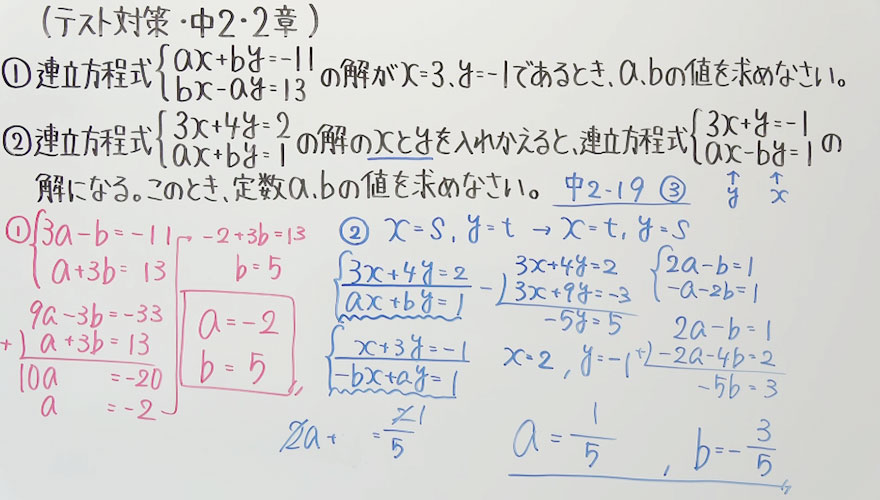 (テスト対策・中2・2章)
①連立方程式{ax+by=-11 bx-ay=13 の解がx=3、y=-1であるとき、a、bの値を求めなさい。
②連立方程式{3x+4y=2 ax+by=1 の解のxとyを入れかえると、連立方程式{3x+y=-1 ax-by=1 の
解になる。このとき、定数a、bの値を求めなさい。 中2-19 ③ ↑y ↑x
①{3a-b=-11
a+3b=13
9a-3b=-33
+) a+3b=13
10a =-20
a =-2
-2+3b=13
b=5
a=-2
b=5
② x=s, y=t → x=t, y=s
{3x+4y=2
ax+by=1
{x+3y=-1
-bx+ay=1
3x+4y=2
-) 3x+9y=-3
-5y=5
x=2, y=-1
{2a-b=1
-a-2b=1
2a-b=1
+) -2a-4b=2
-5b=3
2a+ =21/5
a=1/5, b=-3/5